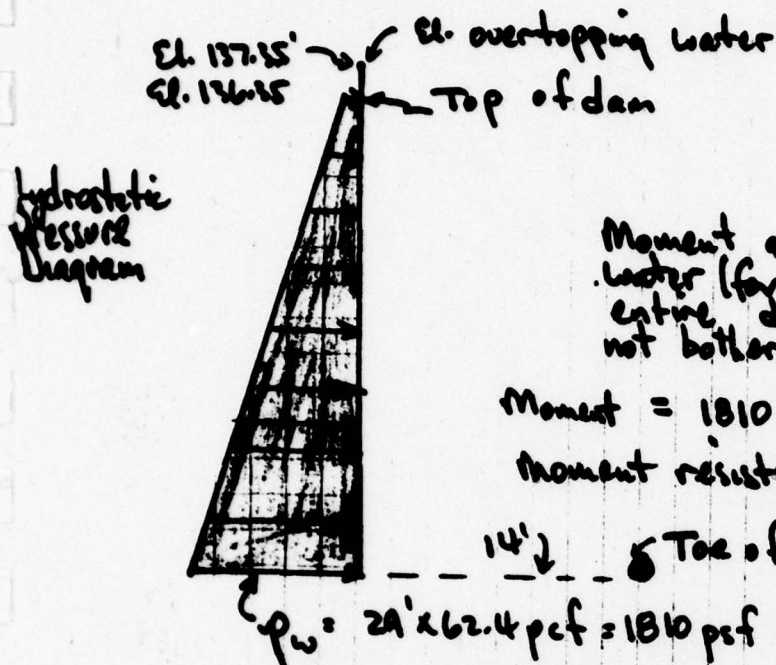 El. 137.35'
El. overtopping water
El. 136.35
Top of dam
Hydrostatic
Pressure
Diagram
Moment
water (for
entire
not bother
Moment = 1810
Moment resist
14'
Toe of
Pw = 29' x 62.4 pcf = 1810 psf